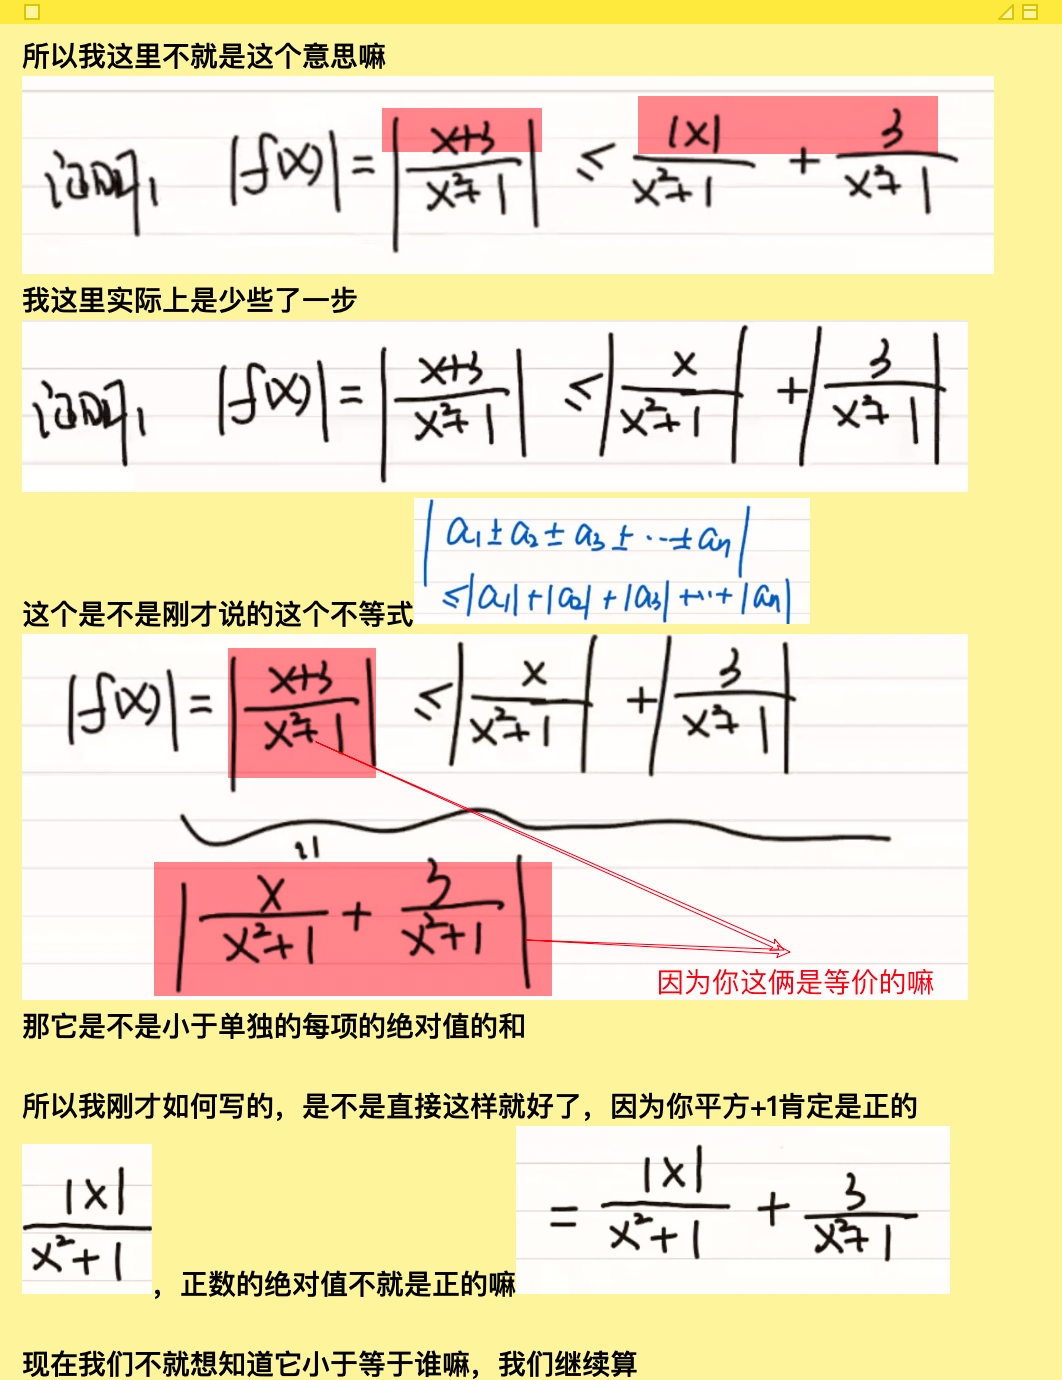 所以我这里不就是这个意思嘛
证明, |f(x)| = |(x+3)/(x²+1)| ≤ |x|/(x²+1) + 3/(x²+1)
我这里实际上是少些了一步
证明, |f(x)| = |(x+3)/(x²+1)| ≤ |x/(x²+1)| + |3/(x²+1)|
|a₁±a₂±a₃±⋯±aₙ|
≤|a₁|+|a₂|+|a₃|+⋯+|aₙ|
这个是不是刚才说的这个不等式
|f(x)| = |(x+3)/(x²+1)| ≤ |x/(x²+1)| + |3/(x²+1)|
|x/(x²+1) + 3/(x²+1)|
因为你这俩是等价的嘛
那它是不是小于单独的每项的绝对值的和
所以我刚才如何写的，是不是直接这样就好了，因为你平方+1肯定是正的
|x|/(x²+1)，正数的绝对值不就是正的嘛 = |x|/(x²+1) + 3/(x²+1)
现在我们不就想知道它小于等于谁嘛，我们继续算